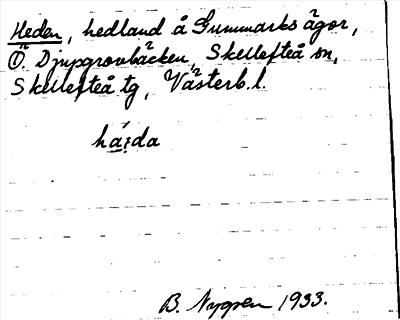 Heden, hedland å Gummarks ägor,
Ö. Djupgrovbäcken, Skellefteå sn,
Skellefteå tg, Västerb. l.
há:da
B. Nygren 1933.